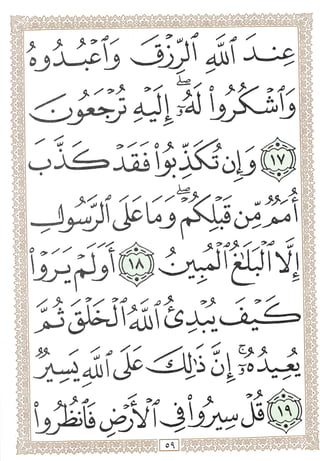 عِندَ ٱللَّهِ ٱلرِّزْقَ وَٱعْبُدُوهُ
وَٱشْكُرُوا۟ لَهُۥٓ ۖ إِلَيْهِ تُرْجَعُونَ
١٧ وَإِن تُكَذِّبُوا۟ فَقَدْ كَذَّبَ
أُمَمٌ مِّن قَبْلِكُمْ ۖ وَمَا عَلَى ٱلرَّسُولِ
إِلَّا ٱلْبَلَـٰغُ ٱلْمُبِينُ ١٨ أَوَلَمْ يَرَوْا۟
كَيْفَ يُبْدِئُ ٱللَّهُ ٱلْخَلْقَ ثُمَّ
يُعِيدُهُۥٓ ۚ إِنَّ ذَٰلِكَ عَلَى ٱللَّهِ يَسِيرٌ
١٩ قُلْ سِيرُوا۟ فِى ٱلْأَرْضِ فَٱنظُرُوا۟
٥٩